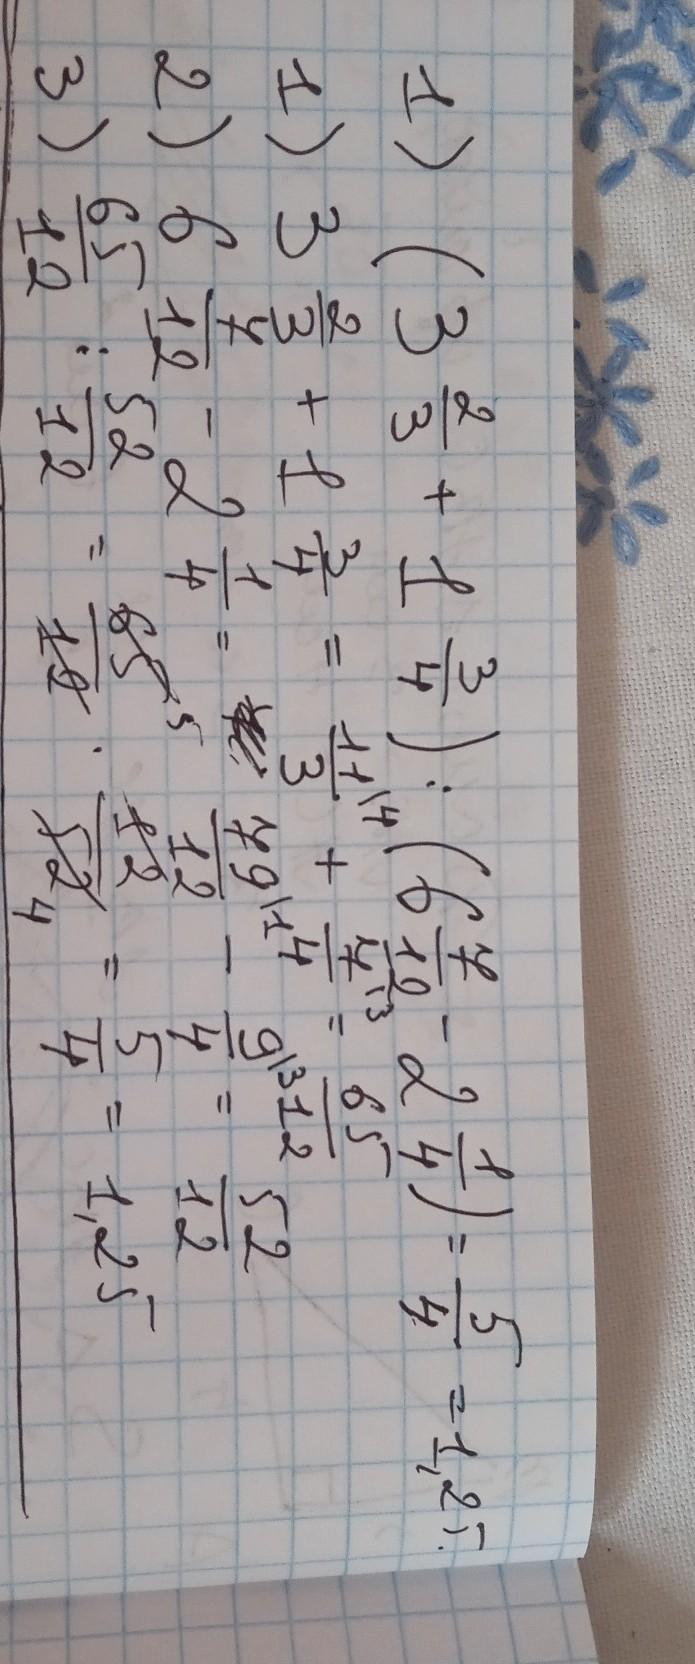 1) (3 2/3 + 1 3/4) : (6 7/12 - 2 1/4) = 5/4 = 1,25.
1) 3 2/3 + 1 3/4 = 11/3 \4 + 7/4 \3 = 65/12
2) 6 7/12 - 2 1/4 = 79/12 \1 - 9/4 \3 = 52/12
3) 65/12 : 52/12 = 65 5/12 · 12/52 4 = 5/4 = 1,25